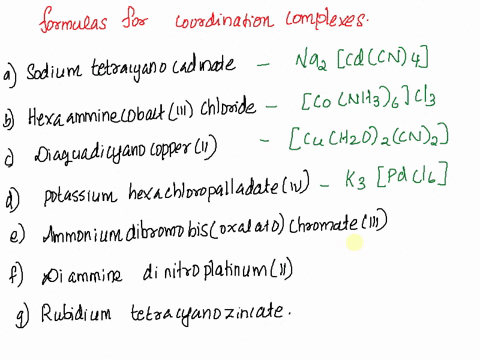 formulas for coordination complexes.
a) Sodium tetracyano cadmate – Na2 [Cd(CN)4]
b) Hexaamminecobalt(III) chloride – [Co(NH3)6]Cl3
c) Diaquadicyano copper(II) – [Cu(H2O)2(CN)2]
d) potassium hexachloropalladate(IV) – K3 [PdCl6]
e) Ammonium dibromobis(oxalato) chromate(III)
f) Diammine dinitroplatinum(II)
g) Rubidium tetracyanozincate.